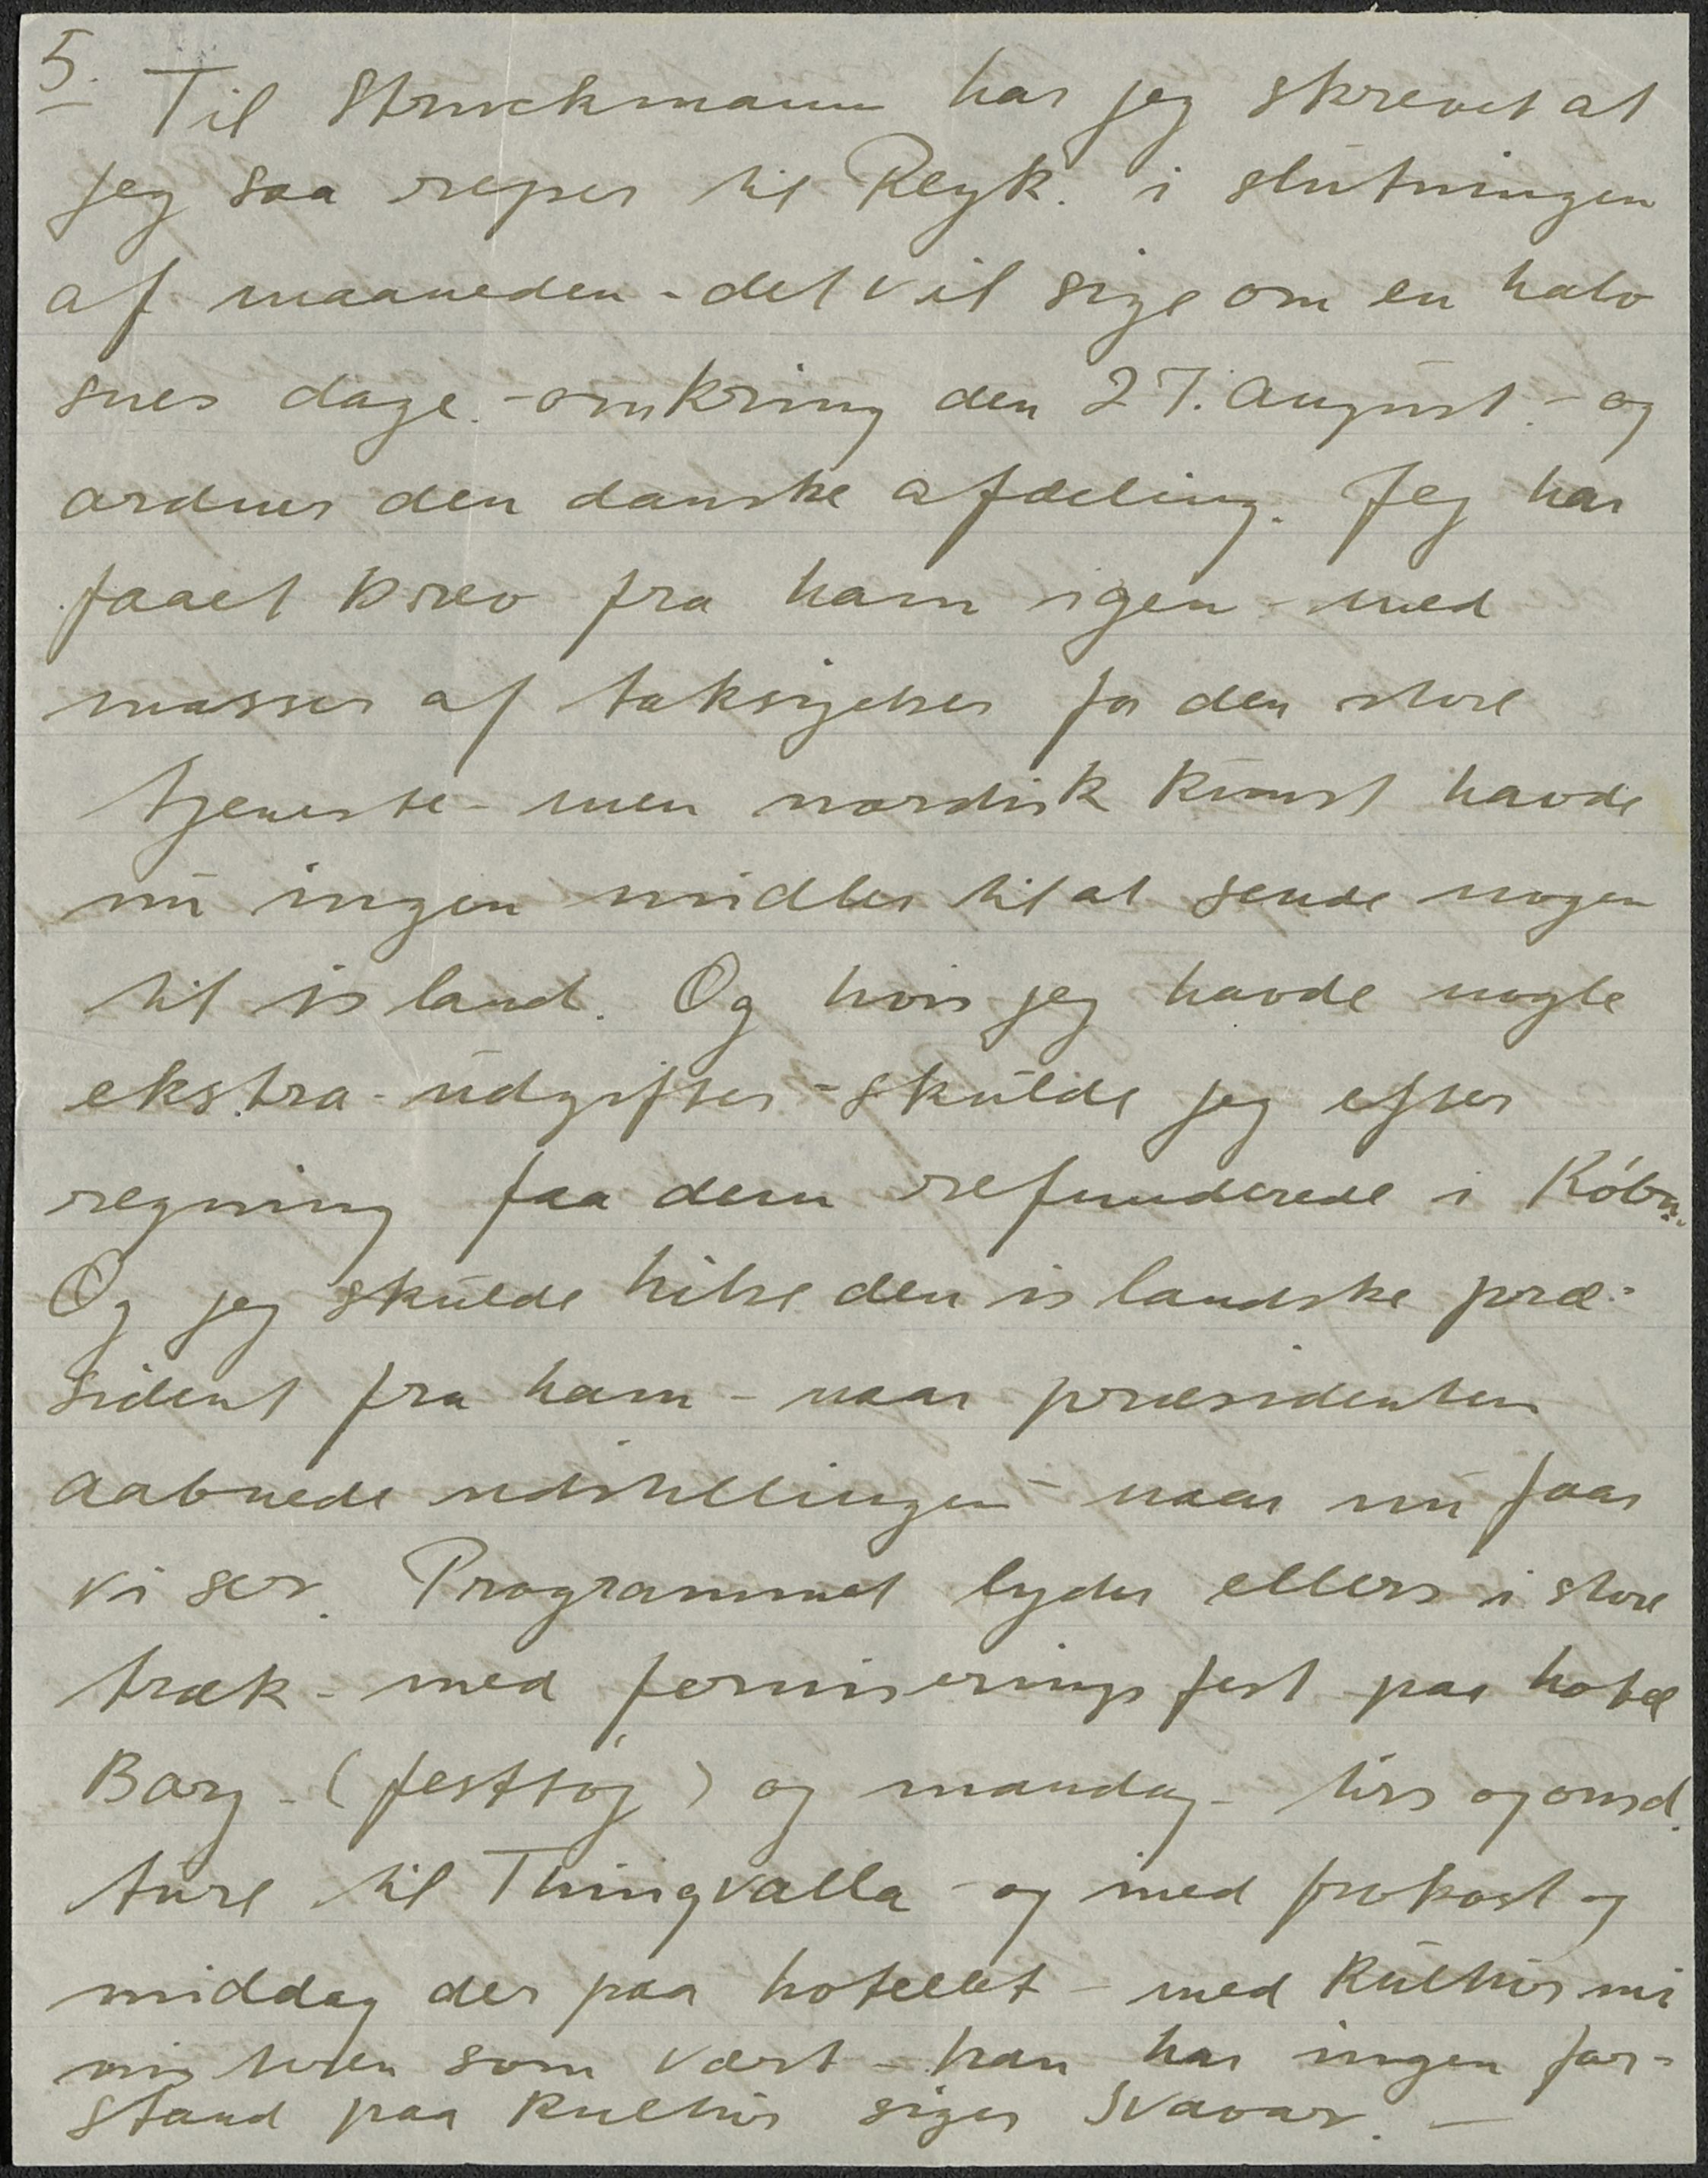 5.
Til Struckmann har jeg skrevet at
jeg saa rejser til Reyk. i slutningen
af maaneden - det vil sige om en halv
snes dage. - omkring den 27. august - og
ordner den danske afdeling. Jeg har
faaet brev fra ham igen - med
masser af taksigelser for den store
tjeneste - men nordisk kunst havde
nu ingen midler til at sende nogen
til island. Og hvis jeg havde nogle
ekstra - udgifter - skulde jeg efter
regning faa dem refunderede i Köbn.
Og jeg skulde hilse den islandske præ-
sident fra ham - naar præsidenten
aabnede udstillingen - naar nu faar
vi ser. Programmet lyder ellers i store
træk - med ferniseringsfest paa hotel
Borg - (festtöj) og mandag - tirs og onsd.
ture til Thingvalla - og med frokost og
middag der paa hotellet - med kulturmi
nisteren som vært - han har ingen for-
stand paa kultur siger Svavar. -